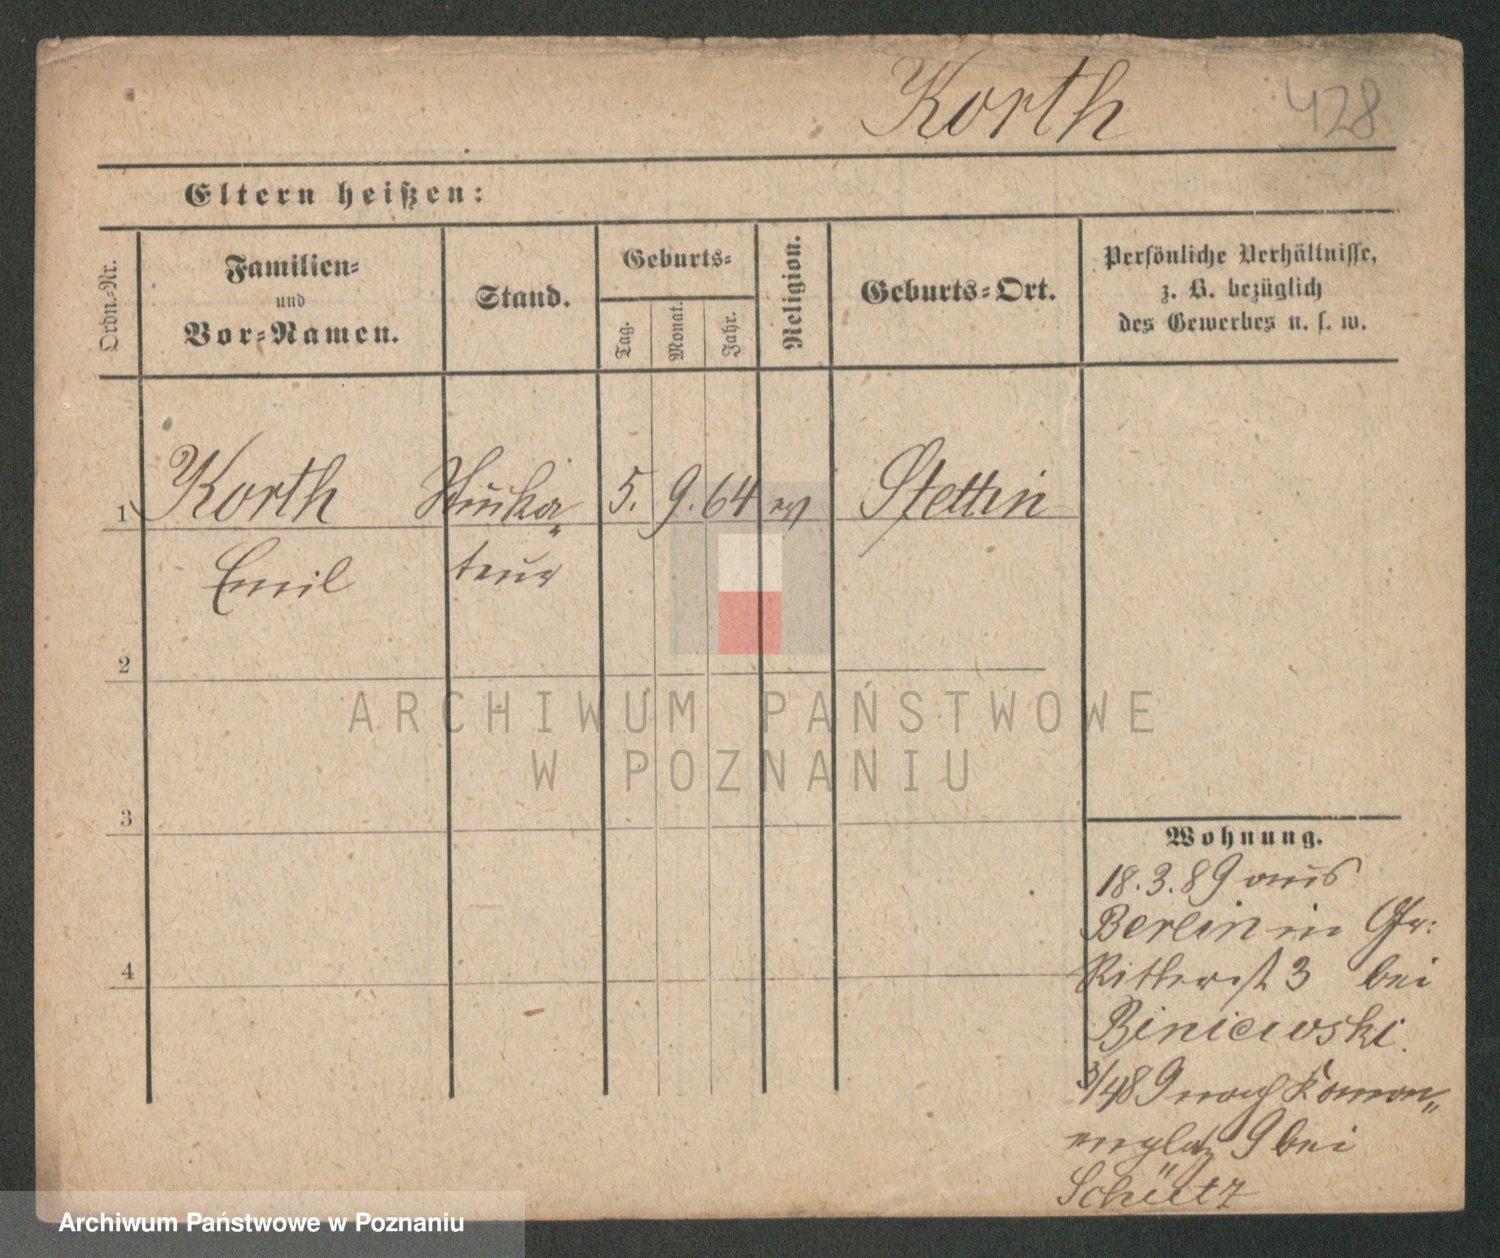 Korth 428
Eltern heißen:
Ordn=Nr.
Familien=
und
Vor=Namen.
Stand.
Geburts=
Tag.
Monat.
Jahr.
Religion.
Geburts=Ort.
Persönliche Verhältnisse,
z. B. bezüglich
des Gewerbes u. s. w.
1 Korth Stucka„ 5. 9. 64 ev Stettin
Emil teur
2
3
4
ARCHIWUM PAŃSTWOWE
W POZNANIU
Wohnung.
18.3.89 aus
Berlin in Gr:
Ritterst 3 bei
Biniewski.
3/4 89 nach
9 bei
Schütz
Archiwum Państwowe w Poznaniu